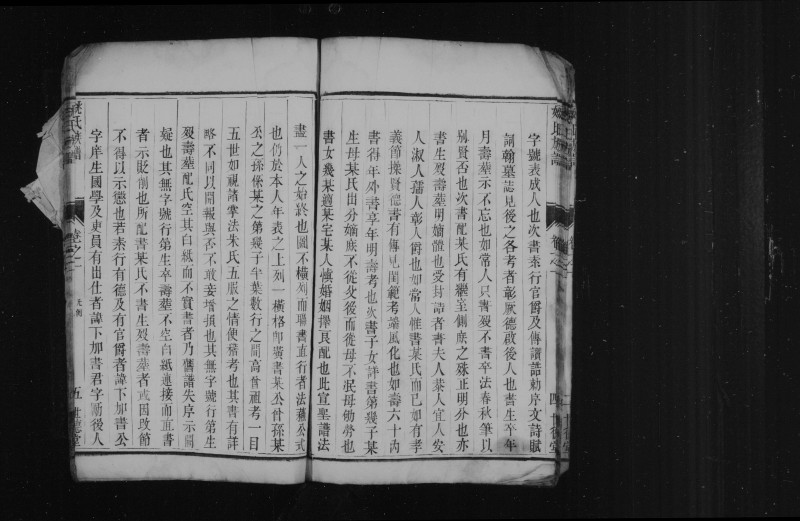 字號表成人也次書素行官爵及傳讚誥勅序文詩賦
詞翰墓誌見後之各考者彰厥德啟後人也書生卒年
月壽葬示不忘也如常人只書歿不書卒法春秋筆以
別賢否也次書配某氏有繼室側庶之殊正明分也亦
書生歿壽葬明嫡體也受封誥者書夫人恭人宜人安
人淑人孺人彰人爵也如常人惟書某氏而已如有孝
義節操賢德書有傳見閨範考端風化也如壽六十內
書得年外書享年明壽考也次書子女詳書第幾子某
生母某氏出分嫡庶不從父後而從母不泯母劬勞也
書女幾某適某宅某人慎婚姻擇良配也此宣聖譜法
盡一人之始終也圖不橫列而聯書直行者法蘓公式
也仍於本人年表之上列一橫格即價書某公曾孫某
公之孫係某之第幾子半葉數行之間高曾祖考一目
五世如視諸掌法朱氏五服之情便稽考也其書有詳
略不同以聞報與否不敢妄增損也其無字號行第生
歿壽葬配氏空其白紙而不實書者乃舊譜失序示闕
疑也其無字號行第生卒壽葬不空白紙連接而直書
者示貶削也所配書某氏不書生歿壽葬者或因改節
不得以示懲也若素行有德及有官爵者諱下加書公
字庠生國學及吏員有出仕者諱下加書君字勵後人
氏族譜
卷之
五